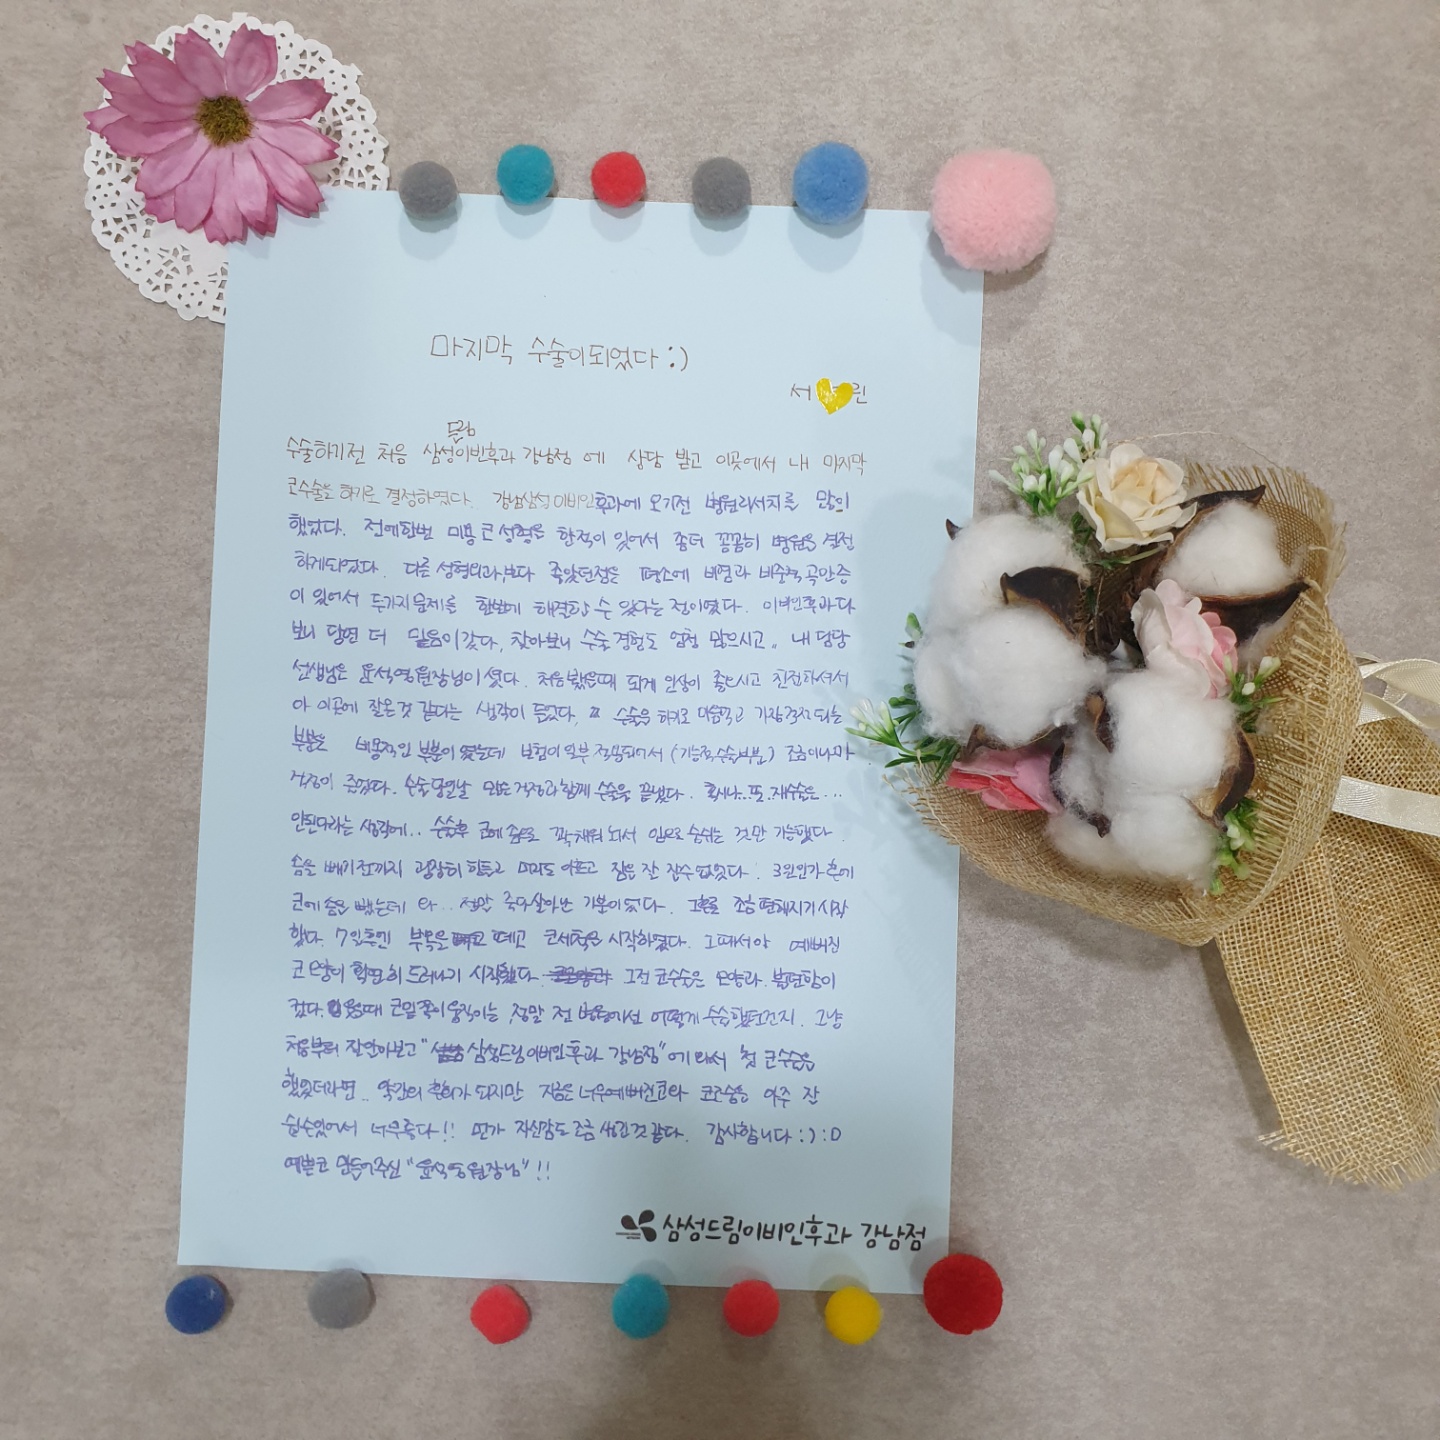 마지막 수술이되었다 :)
서 린
드림
수술하기전 처음 삼성이빈후과 강남점 에 상담 받고 이곳에서 내 마지막
코수술을 하기로 결정하였다. 강남삼성이비인후과에 오기전 병원리서치를 많이
했었다. 전에한번 미용 코성형을 한적이 있어서 좀더 꼼꼼히 병원을 결정
하게되었다. 다른 성형외과보다 좋았던점은 평소에 비염과 비중격 곡만증
이 있어서 두가지문제를 한번에 해결할 수 있다는 점이였다. 이비인후과다
보니 당연 더 믿음이 갔다, 찾아보니 수술경험도 엄청 많으시고.. 내 담당
선생님은 윤석영원장님이셨다. 처음봤을때 되게 인상이 좋으시고 친절하셔서
아 이곳에 잘온것 같다는 생각이 들었다. 수술을 하기로 마음먹고 가장걱정되는
부분은 비용적인 부분이였는데 보험이일부 적용되어서 (기능적수술부분) 조금이나마
걱정이 줄었다. 수술당일날 많은걱정과함께 수술을 끝냈다. 혹시나..또..재수술은...
안된다라는 생각에.. 수술후 코에 솜으로 꽉채워놔서 입으로 숨쉬는 것만 가능했다.
솜을 빼기전까지 굉장히 힘들고 머리도 아프고 잠을 잘 잘수없었다. 3일인가 후에
코에 솜을 뺐는데 와.. 정말 죽다살아난 기분이었다. 그후로 조금편해지기시작
했다. 7일후엔 부목을 떼고 코세척을 시작하였다. 그때서야 예뻐진
코모양이 확연히 드러나기 시작했다. 그전 코수술은 모양과 불편함이
컸다. 웃을때 코밑쪽이움직이는, 정말 전 병원에선 어떻게수술했던건지. 그냥
처음부터 잘알아보고 "삼성드림이비인후과 강남점"에 와서 첫 코수술을
했었더라면.. 약간의 후회가 되지만 지금은너무예뻐진코와 코로숨을 아주 잘
쉴수있어서 너무좋다!! 뭔가 자신감도 조금 생긴것 같다. 감사합니다 :) :D
예쁜코 만들어주신 "윤석영원장님" !!
삼성드림이비인후과 강남점